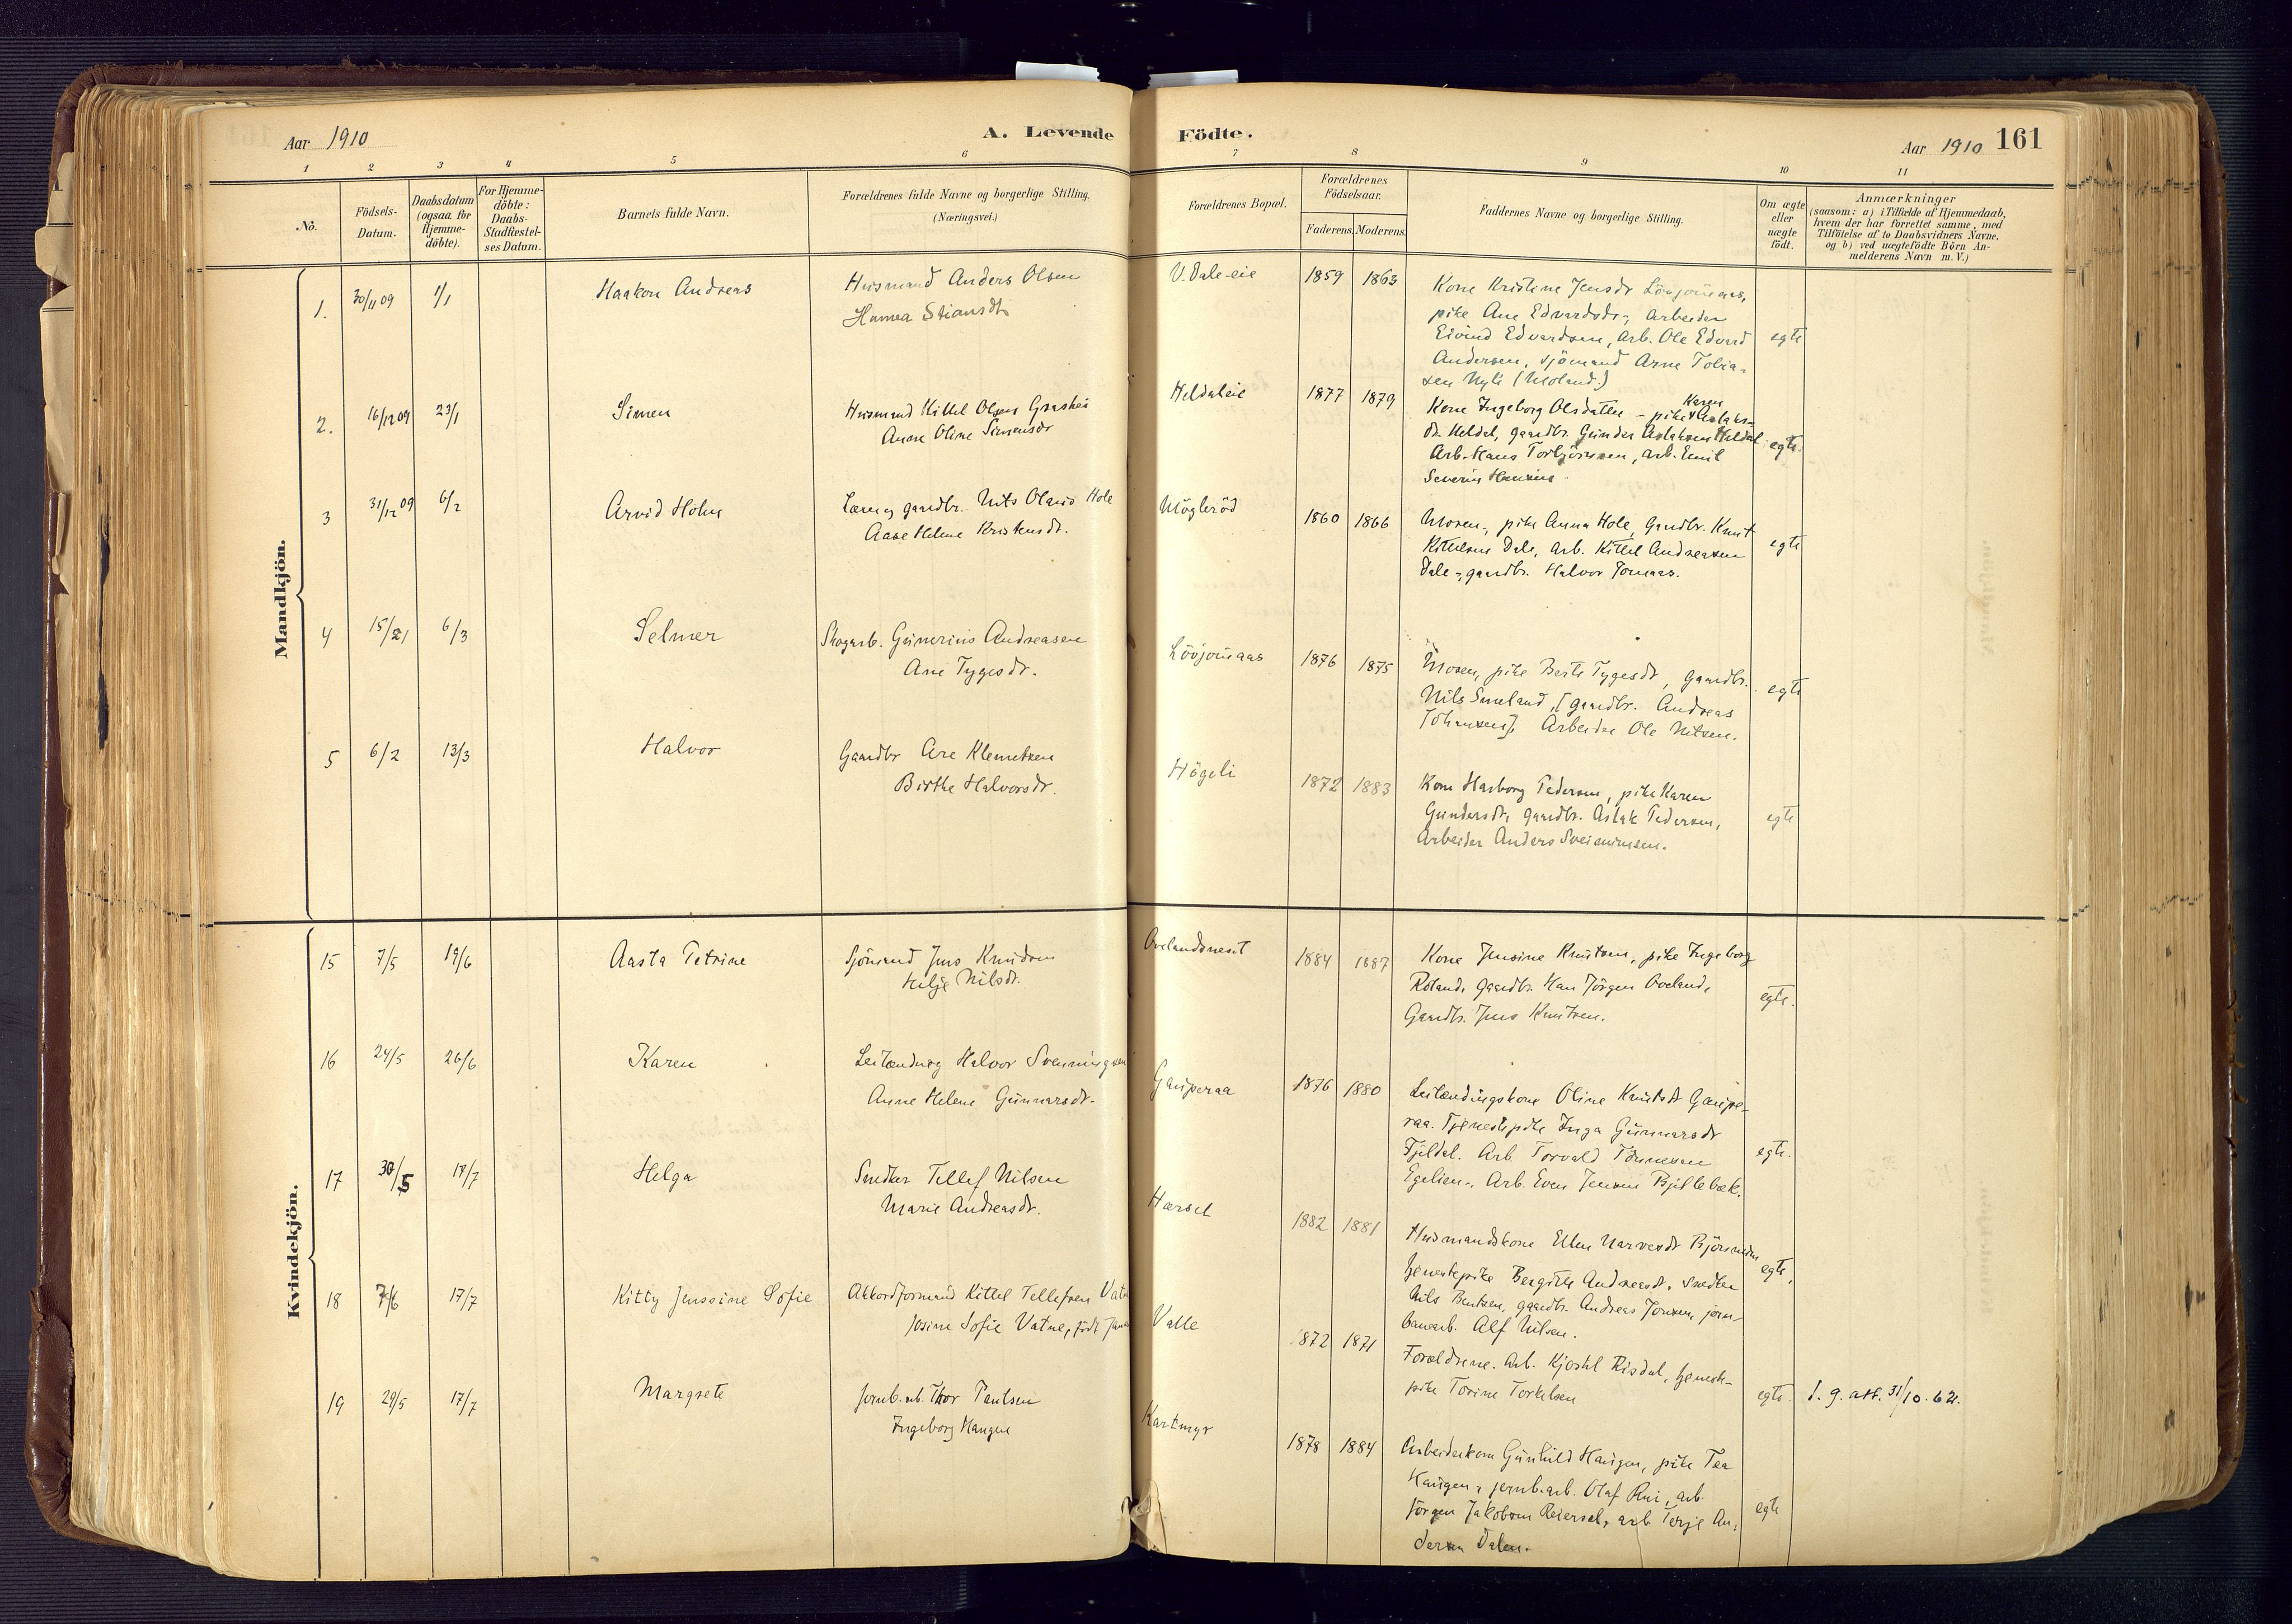 Aar 1910
A. Levende Födte.
Aar 1910 161
1 2 3 4 5 6 7 8 9 10 11
No.
Födsels-Datum.
Daabsdatum (ogsaa for Hjemme-döbte).
For Hjemme-döbte: Daabs-Stadfæstel-ses Datum.
Barnets fulde Navn.
Forældrenes fulde Navne og borgerlige Stilling.
(Næringsvei.)
Forældrenes Bopæl.
Forældrenes Födselsaar.
Faderens. Moderens.
Faddernes Navne og borgerlige Stilling.
Om ægte eller uægte födt.
Anmærkninger
(saasom: a) i Tilfælde af Hjemmedaab,
hvem der har forrettet samme, med
Tilföielse af to Daabsvidners Navne.
og b) ved uægtefödte Börn An-
melderens Navn m. V.)
Mandkjön.
1. 30/11 09 1/1 Haakon Andreas
Husmand Anders Olsen
Stiansdtr
V. Dale-eie 1859 1863
Kone Kristine Jensdr
pike Ane Edvardsdr, Arbeider
Eivind Edvardsen, Arb. Ole Edvard
Andersen, sjömand Arne Tobia-
sen (Moland.)
egte
2. 16/12 09 23/1 Simen
Husmand Kittel Olsen
Anne Oline Simensdr
Heldaleie 1877 1879
Kone Ingeborg Olsdatter - pike Karen Aslaks-
dr. Heldal, gaardbr. Gunder Aslaksen Heldal
Arb. Hans Torbjörnsen, arb. Emil
Severin
egte.
3 31/12 09 6/2 Arvid Holm
gaardbr. Nils Olavs Hole
Aase Helene Kristensdr.
Möglröd 1860 1866
Moren, pike Anna Hole, Gardbr. Knut
Kittelsen Dale, arb. Kittel Andreasen
Dale, gaardbr. Halvor
egte
4 15/1 6/3 Selmer
Skogarb. Gunerius Andreasen
Ane Tygesdr.
Lövjomaas 1876 1875
Moren, pike Berte Tygesdr, gaardbr.
Nils Smeland, [gaardbr. Andreas
Johansen], Arbeider Ole Nilsen.
egte
5 6/2 13/3 Halvor
Gaardbr Are Klemetsen
Birthe Halvorsdr.
Högeli 1872 1883
Kone Hasborg Pedersen, pike Karen
Gundersdr, gaardbr. Aslak Pedersen,
Arbeider Anders
egte
Kvindekjön.
15 7/5 19/6 Aasta Petrine
Sjömand Jens Knudsen
Nilsdr.
Ovelandsneset 1884 1887
Kone Jensine Knutsen, pike Ingeborg
Roland, gaardbr. Jörgen Oveland,
Gaardbr. Jens Knutsen.
egte.
16 24/5 26/6 Karen
Leilænding Halvor Svenningsen
Anne Helene Gunnarsdr.
Gauperaa 1876 1880
Leilændingskone Oline Knutsdr Gaupe-
raa. Tjenestepike Inga Gunnarsdr
Fjeldal. Arb Torvald Tönnesen
Egelien, Arb. Even Jensen
egte.
17 30/5 17/7 Helga
Snedker Tellef Nilsen
Marie Andreasdr.
Hærsel 1882 1881
Husmandskone Ellen Narvesdr
tjenestepike Bergitte Andreasdr, snedker
Nils Bentsen, gaardbr. Andreas Jonsen, jern-
banearb. Alf Nilsen.
egte,
18 7/6 17/7 Kitty Jenssine Sofie
Akkordformand Kittel Tellefsen Vatne
Josine Sofie Vatne, födt
Valle 1872 1871
Forældrene. Arb. Kjostel Risdal, tjeneste-
pike Torine Torkelsen
egte.
19 29/5 17/7 Margrete
Jernb.arb. Thor Paulsen
Ingeborg Haugen
Kartmyr 1878 1884
Arbeiderkone Gunhild Haugen, pike Tea
Haugen, jernb.arb. Olaf Rui, arb.
Jörgen Jakobsen Reiersel, arb Terje An-
dersen Dalen.
egte
f. g. att. 31/10. 62.